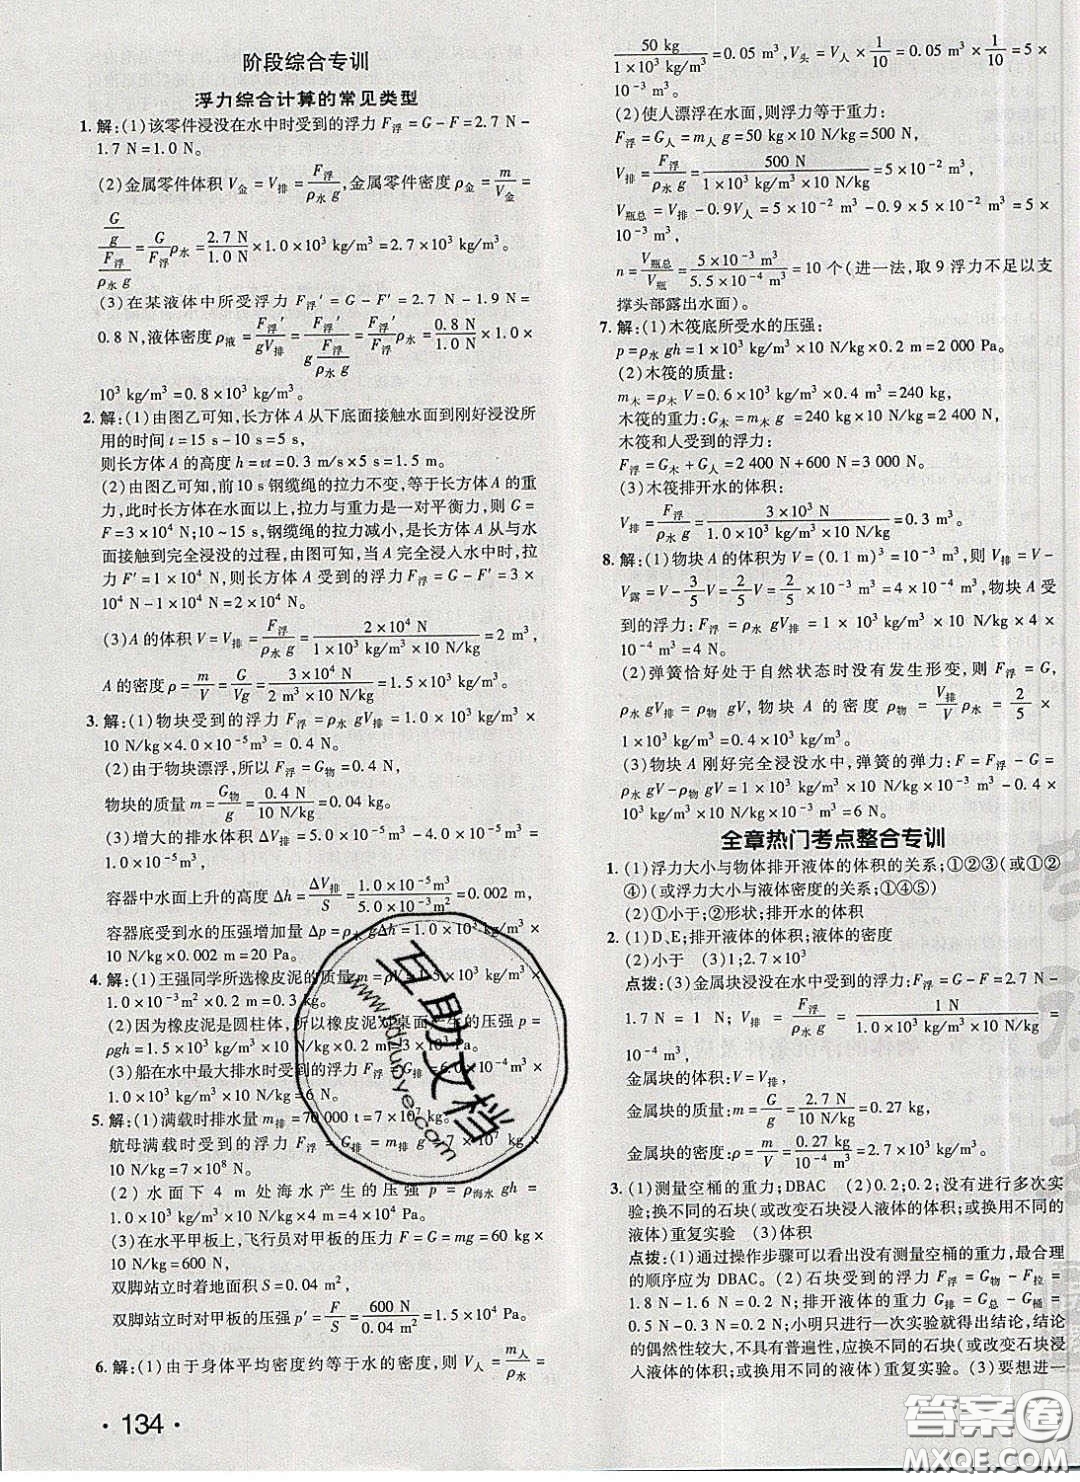 阶段综合专训
浮力综合计算的常见类型
1. 解:(1)该零件浸没在水中时受到的浮力 F浮=G-F=2.7 N-
1.7 N=1.0 N。
(2)金属零件体积 V金=V排=F浮/(ρ水 g),金属零件密度 ρ金=m/V金=
(G/g)/(F浮/(ρ水 g))=(G/F浮)ρ水=(2.7 N/1.0 N)×1.0×10³ kg/m³=2.7×10³ kg/m³。
(3)在某液体中所受浮力 F浮′=G-F′=2.7 N-1.9 N=
0.8 N,液体密度 ρ液=F浮′/(gV排)=F浮′/(g·F浮/(ρ水 g))=(F浮′/F浮)ρ水=(0.8 N/1.0 N)×1.0×
10³ kg/m³=0.8×10³ kg/m³。
2. 解:(1)由图乙可知,长方体 A 从下底面接触水面到刚好浸没所
用的时间 t=15 s-10 s=5 s,
则长方体 A 的高度 h=vt=0.3 m/s×5 s=1.5 m。
(2)由图乙可知,前 10 s 钢缆绳的拉力不变,等于长方体 A 的重
力,此时长方体在水面以上,拉力与重力是一对平衡力,则 G=
F=3×10⁴ N;10~15 s,钢缆绳的拉力减小,是长方体 A 从与水
面接触到完全浸没的过程,由图可知,当 A 完全浸入水中时,拉
力 F′=1×10⁴ N,则长方体 A 受到的浮力 F浮=G-F′=3×
10⁴ N-1×10⁴ N=2×10⁴ N。
(3)A 的体积 V=V排=F浮/(ρ水 g)=2×10⁴ N/(1×10³ kg/m³×10 N/kg)=2 m³,
A 的密度 ρ=m/V=G/(Vg)=3×10⁴ N/(2 m³×10 N/kg)=1.5×10³ kg/m³。
3. 解:(1)物块受到的浮力 F浮=ρ水 gV排=1.0×10³ kg/m³×
10 N/kg×4.0×10⁻⁵m³=0.4 N。
(2)由于物块漂浮,所以 F浮=G物=0.4 N,
物块的质量 m=G物/g=0.4 N/(10 N/kg)=0.04 kg。
(3)增大的排水体积 ΔV排=5.0×10⁻⁵m³-4.0×10⁻⁵m³=
1.0×10⁻⁵m³,
容器中水面上升的高度 Δh=ΔV排/S=1.0×10⁻⁵ m³/(5.0×10⁻³ m²)=0.002 m,
容器底受到水的压强增加量 Δp=ρ水gΔh=1.0×10³ kg/m³×
10 N/kg×0.002 m=20 Pa。
4. 解:(1)王强同学所选橡皮泥的质量 m=ρV=1.5×10³ kg/m³×
1.0×10⁻³m²×0.02 m=0.3 kg。
(2)因为橡皮泥是圆柱体,所以橡皮泥对桌面产生的压强 p=
ρgh=1.5×10³ kg/m³×10 N/kg×0.02 m=300 Pa。
(3)船在水中最大排水时受到的浮力 F浮=ρ水gV排=1.0×
10³ kg/m³×10 N/kg×6.0×10⁻⁴m³=6 N。
5. 解:(1)满载时排水量 m排=70 000 t=7×10⁷kg,
航母满载时受到的浮力 F浮=G排=m排 g=7×10⁷ kg×
10 N/kg=7×10⁸ N。
(2)水面下 4 m 处海水产生的压强 p=ρ海水 gh=
1.0×10³ kg/m³×10 N/kg×4 m=4×10⁴ Pa。
(3)在水平甲板上,飞行员对甲板的压力 F=G=mg=60 kg×
10 N/kg=600 N,
双脚站立时着地面积 S=0.04 m²,
双脚站立时对甲板的压强 p′=F/S=600 N/0.04 m²=1.5×10⁴ Pa。
6. 解:(1)由于身体平均密度约等于水的密度,则 V人=m人/ρ水=
·134·
50 kg/(1×10³ kg/m³)=0.05 m³,V头=V人×1/10=0.05 m³×1/10=5×
10⁻³m³。
(2)使人漂浮在水面,则浮力等于重力:
F浮=G人=m人 g=50 kg×10 N/kg=500 N,
V排=F浮/(ρ水 g)=500 N/(1×10³ kg/m³×10 N/kg)=5×10⁻² m³,
V瓶总=V排-0.9V人=5×10⁻² m³-0.9×5×10⁻² m³=5×
10⁻³ m³,
n=V瓶总/V瓶=5×10⁻³ m³/(5.5×10⁻⁴ m³)=10 个(进一法,取 9 浮力不足以支
撑头部露出水面)。
7. 解:(1)木筏底所受水的压强:
p=ρ水 gh=1×10³ kg/m³×10 N/kg×0.2 m=2 000 Pa。
(2)木筏的质量:
m木=ρ木 V=0.6×10³ kg/m³×2 m×0.2 m=240 kg,
木筏的重力:G木=m木 g=240 kg×10 N/kg=2 400 N,
木筏和人受到的浮力:
F浮=G木+G人=2 400 N+600 N=3 000 N。
(3)木筏排开水的体积:
V排=F浮/(ρ水 g)=3×10³ N/(1×10³ kg/m³×10 N/kg)=0.3 m³。
8. 解:(1)物块 A 的体积为 V=(0.1 m)³=10⁻³ m³,则 V排=V-
V露=V-3/5V=2/5V=2/5×10⁻³ m³=4×10⁻⁴ m³,物块 A 受
到的浮力:F浮=ρ水 gV排=1×10³ kg/m³×10 N/kg×4×
10⁻⁴ m³=4 N。
(2)弹簧恰好处于自然状态时没有发生形变,则 F浮=G,
ρ水 gV排=ρ物 gV,物块 A 的密度 ρ物=(V排/V)ρ水=2/5×
1×10³ kg/m³=0.4×10³ kg/m³。
(3)物块 A 刚好完全浸没水中,弹簧的弹力:F=F浮-G=
ρ水 gV-ρ物 gV=1×10³ kg/m³×10 N/kg×10⁻³ m³-0.4×
10³ kg/m³×10 N/kg×10⁻³m³=6 N。
全章热门考点整合专训
1. (1)浮力大小与物体排开液体的体积的关系;①②③(或①②
④)(或浮力大小与液体密度的关系;①④⑤)
(2)①小于;②形状;排开水的体积
2. (1)D、E;排开液体的体积;液体的密度
(2)小于 (3)1;2.7×10³
点拨:(3)金属块浸没在水中时受到的浮力:F浮=G-F=2.7 N-
1.7 N=1 N;V排=F浮/(ρ水 g)=1 N/(1.0×10³ kg/m³×10 N/kg)=
金属块的体积:V=V排,
金属块的质量:m=G/g=2.7 N/(10 N/kg)=0.27 kg,
金属块的密度:ρ=m/V=0.27 kg/(1×10⁻⁴ m³)=2.7×10³ kg/m³。
3. (1)测量空桶的重力;DBAC (2)0.2;0.2;没有进行多次实
验;换不同的石块(或改变石块浸入液体的体积;或换用不同的
液体)重复实验 (3)体积
点拨:(1)通过操作步骤可以看出没有测量空桶的重力,最合理
的顺序应为 DBAC。(2)石块受到的浮力 F浮=G物-F拉=
1.8 N-1.6 N=0.2 N;排开液体的重力 G排=G总-G桶=
0.5 N-0.3 N=0.2 N;小明只进行一次实验就得出结论,结论
的偶然性较大,不具有普遍性,应换不同的石块(或改变石块浸
入液体的体积;或换用不同的液体)重复实验。(3)要想进一
互助文档
www.hdzuoye.com
答案圈
MXQE.COM